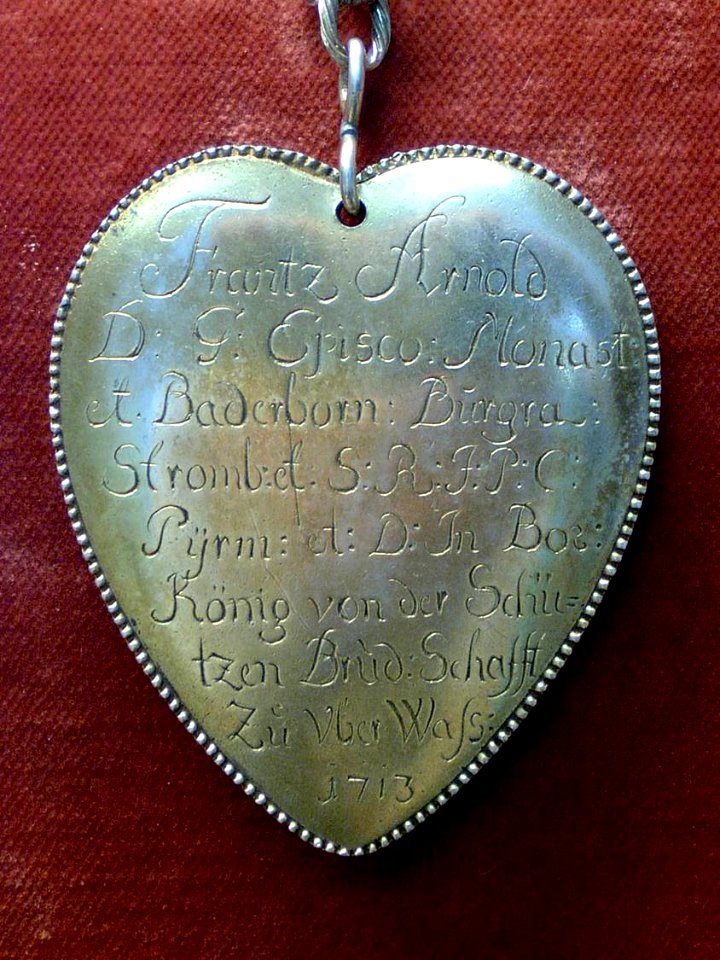 Frantz Arnold
D: G: Episco: Monast:
et. Baderborn: Burgra:
Stromb: et: S: R: J: P: C:
Pÿrm: et: D: In Boe:
König von der Schü-
tzen Brud: Schafft
Zu Vber Waſs:
1713